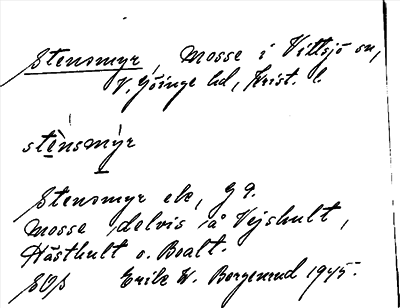 Stensmyr, Mosse i Vittsjö sn,
V. Göinge hd, Krist. l.
stènsmýr
Stensmyr ek, G 9.
Mosse delvis å Vejshult,
Hästhult o. Boalt.
Erik W. Bergenud 1945.